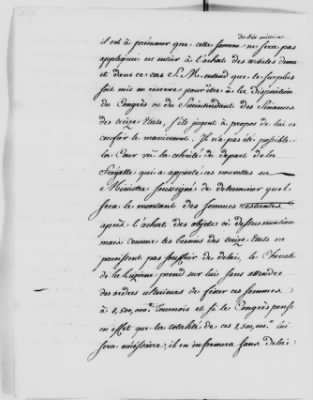 de six millions
il est à présumer que cette somme ne sera pas
appliquée en entier à l'achat des articles
et dans ce cas S. M. entend que le surplus
soit mis en reserve pour être à la disposition
du Congrès ou du Surintendant des Finances
des treize Etats, s'ils jugent à propos de lui en
confier le maniement. Il n'a pas été possible
à la Cour vû la celerité du depart de la
Fregatte qui a apporté ces nouvelles au
Ministre soussigné de determiner quel
sera le montant des sommes restantes
après l'achat des objets ci dessus mention
mais comme les besoins des treize Etats ne
paroissent pas souffrir de delai, le Chevalr
de la Luzerne prend sur lui sans attendre
des ordres ulterieurs de fixer ces sommes
à 1,500,000 Tournois et si le Congrès pense
en effet que la totalité de ces 1,500,000 lui
sera nécessaire, il en informera sans delai